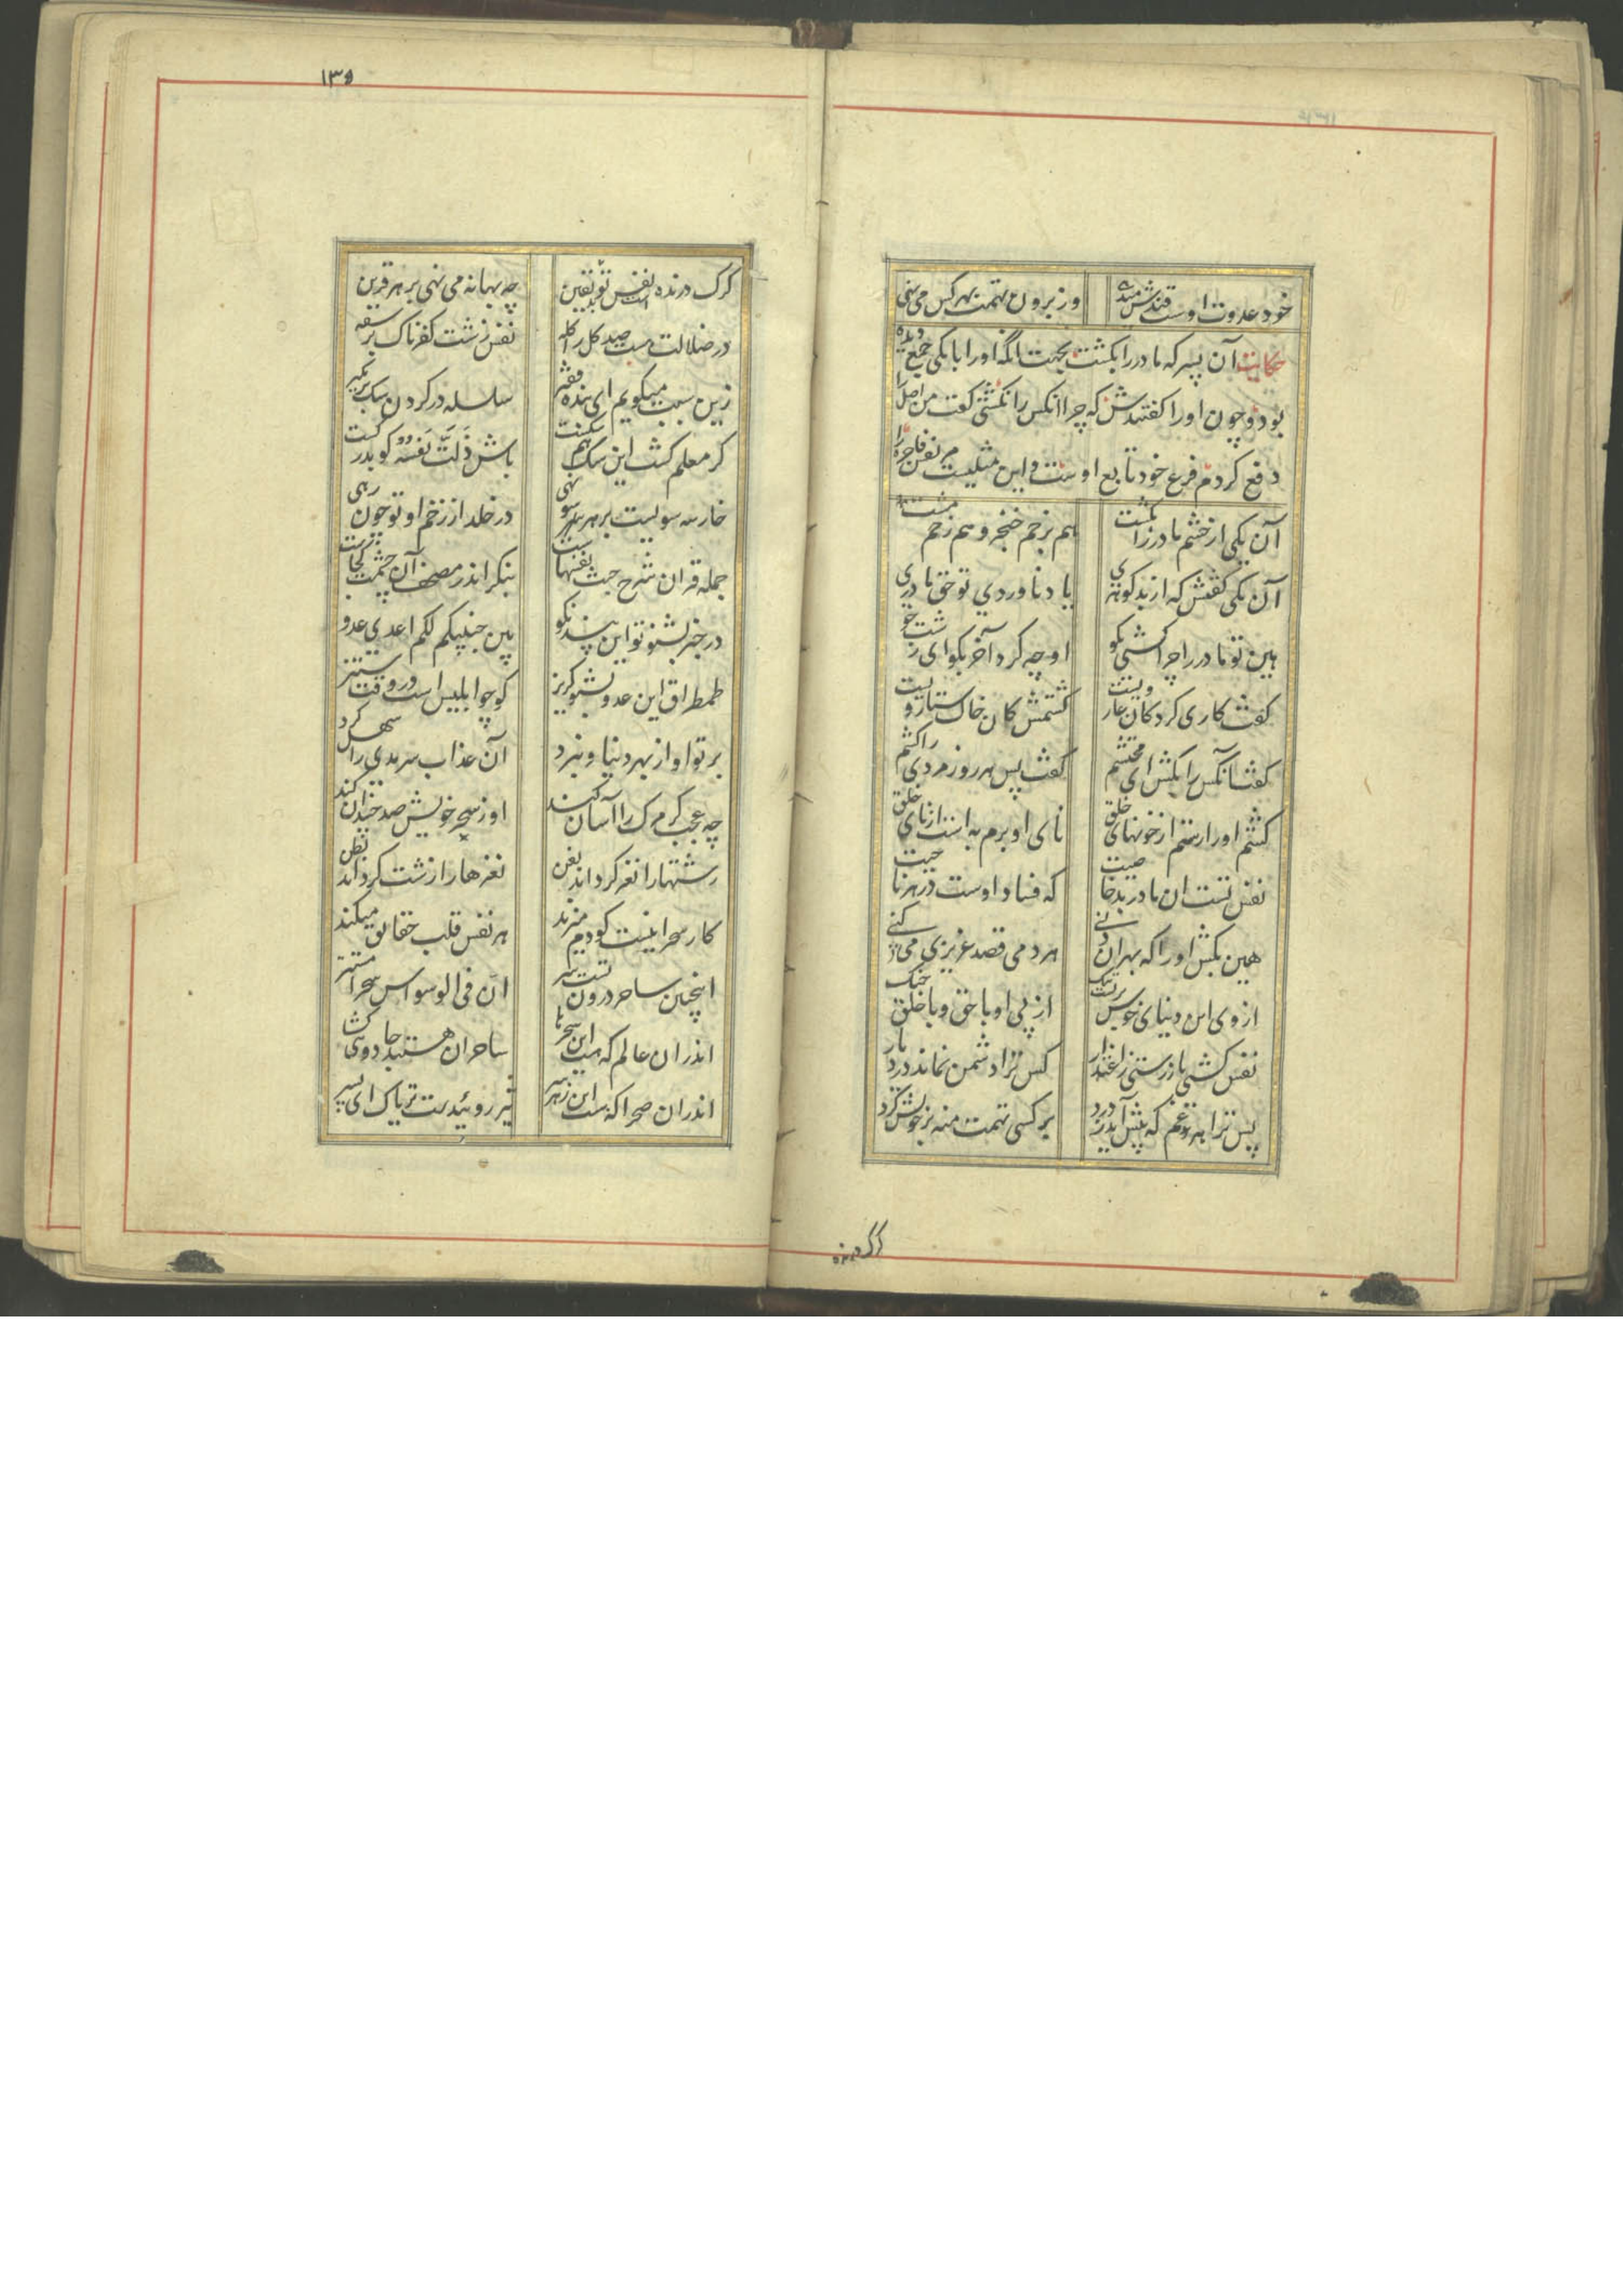 خود عدوت اوست قندش میدهی وز برون تهمت بهر کس می نهی
حکایت آن پسر که مادر را بکشت بجهت انکه او را با یکی جمع دیده
بود و چون او را کفتندش که چرا انکس را نکشتی کفت من اصل را
دفع کردم فرع خود تابع اوست و این مثلیست مر نفس فاجره را
آن یکی از خشم مادر را بکشت هم بزخم خنجر و هم زخم مشت
آن یکی کفتش که از بد کوهری یاد ناوردی تو حق مادری
هین تو مادر را چرا کشتی بکو او چه کرد آخر بکو ای زشت خو
کفت کاری کرد کان عار ویست کشتمش کان خاک ستار ویست
کفت آنکس را بکش ای محتشم کفت پس هر روز مردی را کشم
کشتم او را رستم از خونهای خلق نای او برم به است از نای خلق
نفس تست ان مادر بد خاصیت که فساد اوست در هر ناحیت
هین بکش او را که بهر ان دنی هر دمی قصد عزیزی می کنی
از وی این دنیای خوش بر تست تنک از پی او با حق و با خلق جنک
نفس کشتی باز رستی ز اعتذار کس ترا دشمن نماند در دیار
پس ترا هر غم که پیش آید ز درد بر کسی تهمت منه بر خویش کرد
کرک درنده
۱۳۵
کرک درنده است نفس تو یقین چه بهانه می نهی بر هر قرین
در ضلالت هست صد کل را کله نفس زشت کفرناک بر سفه
زین سبب میکویم ای بنده فقیر سلسله در کردن سک بر مکیر
کر معلم کشت این سک هم سکست باش ذلت نفسه کو بدرکست
خار سه سویست بر هر سو نهی در خلد از زخم او تو چون رهی
جمله قران شرح خبث نفسهاست بنکر اندر مصحف آن چشمت کجاست
در خبر بشنو تو این پند نکو بین جنبیکم لکم اعدی عدو
طمطراق این عدو مشنو کریز کو چو ابلیس است در وقت ستیز
بر تو او از بهر دنیا و نبرد آن عذاب سرمدی را سهل کرد
چه عجب کر مرک را آسان کند او ز سحر خویش صد چندان کند
زشتها را نغز کرداند بفن نغزها را زشت کرداند بظن
کار سحر اینست کو دم میزند هر نفس قلب حقایق میکند
اینچنین ساحر درون تست سر ان فی الوسواس سحرا مستتر
اندر ان عالم که هست این سحرها ساحران هستند جادوی کشا
اندران صحرا که هست این زهر تر نیز روئیدست تریاک ای پسر